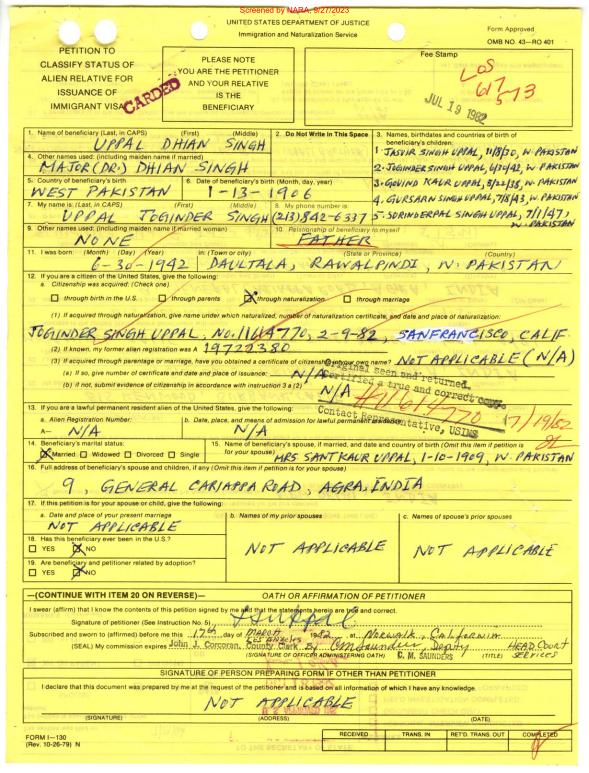 Screened by NARA, 9/27/2023
UNITED STATES DEPARTMENT OF JUSTICE
Immigration and Naturalization Service
Form Approved
OMB NO. 43—RO 401
PETITION TO
CLASSIFY STATUS OF
ALIEN RELATIVE FOR
ISSUANCE OF
IMMIGRANT VISA
CARDED
PLEASE NOTE
YOU ARE THE PETITIONER
AND YOUR RELATIVE
IS THE
BENEFICIARY
Fee Stamp
LOS
617
573
JUL 19 1982
1. Name of beneficiary (Last, in CAPS) (First) (Middle)
UPPAL DHIAN SINGH
2. Do Not Write in This Space
3. Names, birthdates and countries of birth of beneficiary's children:
1. JASVIR SINGH UPPAL, 11/8/30, W. PAKISTAN
2. JOGINDER SINGH UPPAL, 6/30/42, W. PAKISTAN
3. GOVIND KAUR UPPAL, 8/22/35, W. PAKISTAN
4. GURSARN SINGH UPPAL, 7/8/43, W. PAKISTAN
5. SURINDERPAL SINGH UPPAL, 7/1/47, W. PAKISTAN
4. Other names used: (including maiden name if married)
MAJOR (DR.) DHIAN SINGH
5. Country of beneficiary's birth
WEST PAKISTAN
6. Date of beneficiary's birth (Month, day, year)
1-13-1906
7. My name is: (Last, in CAPS) (First) (Middle)
UPPAL JOGINDER SINGH
8. My phone number is:
(213) 842-6337
9. Other names used: (including maiden name if married woman)
NONE
10. Relationship of beneficiary to myself
FATHER
11. I was born: (Month) (Day) (Year) in: (Town or city) (State or Province) (Country)
6-30-1942 DAULTALA, RAWALPINDI, W. PAKISTAN
12. If you are a citizen of the United States, give the following:
a. Citizenship was acquired: (Check one)
through birth in the U.S. through parents X through naturalization through marriage
(1) If acquired through naturalization, give name under which naturalized, number of naturalization certificate, and date and place of naturalization:
JOGINDER SINGH UPPAL. No. 11614770, 2-9-82, SANFRANCISCO, CALIF.
(2) If known, my former alien registration was A 19722380
(3) If acquired through parentage or marriage, have you obtained a certificate of citizenship in your own name? NOT APPLICABLE (N/A)
(a) If so, give number of certificate and date and place of issuance: N/A
(b) if not, submit evidence of citizenship in accordance with instruction 3 a (2) N/A
Original seen and returned.
Certified a true and correct copy.
#11614770
Contact Representative, USINS
7/19/82
13. If you are a lawful permanent resident alien of the United States, give the following:
a. Alien Registration Number: b. Date, place, and means of admission for lawful permanent residence:
A— N/A N/A
14. Beneficiary's marital status:
X Married Widowed Divorced Single
15. Name of beneficiary's spouse, if married, and date and country of birth (Omit this item if petition is for your spouse)
MRS SANT KAUR UPPAL, 1-10-1909, W. PAKISTAN
16. Full address of beneficiary's spouse and children, if any (Omit this item if petition is for your spouse)
9, GENERAL CARIAPPA ROAD, AGRA, INDIA
17. If this petition is for your spouse or child, give the following:
a. Date and place of your present marriage
NOT APPLICABLE
b. Names of my prior spouses
NOT APPLICABLE
c. Names of spouse's prior spouses
NOT APPLICABLE
18. Has this beneficiary ever been in the U.S.?
YES X NO
19. Are beneficiary and petitioner related by adoption?
YES X NO
—(CONTINUE WITH ITEM 20 ON REVERSE)— OATH OR AFFIRMATION OF PETITIONER
I swear (affirm) that I know the contents of this petition signed by me and that the statements herein are true and correct.
Signature of petitioner (See Instruction No. 5)
Subscribed and sworn to (affirmed) before me this 17th day of MARCH 1982 at NORWALK, CALIFORNIA
(SEAL) My commission expires John J. Corcoran, County Clerk By CM Saunders, Deputy HEAD COURT SERVICES
LOS ANGELES
(SIGNATURE OF OFFICER ADMINISTERING OATH) C. M. SAUNDERS (TITLE)
SIGNATURE OF PERSON PREPARING FORM IF OTHER THAN PETITIONER
I declare that this document was prepared by me at the request of the petitioner and is based on all information of which I have any knowledge.
NOT APPLICABLE
(SIGNATURE) (ADDRESS) (DATE)
FORM I—130
(Rev. 10-26-79) N
RECEIVED TRANS. IN RET'D. TRANS. OUT COMPLETED